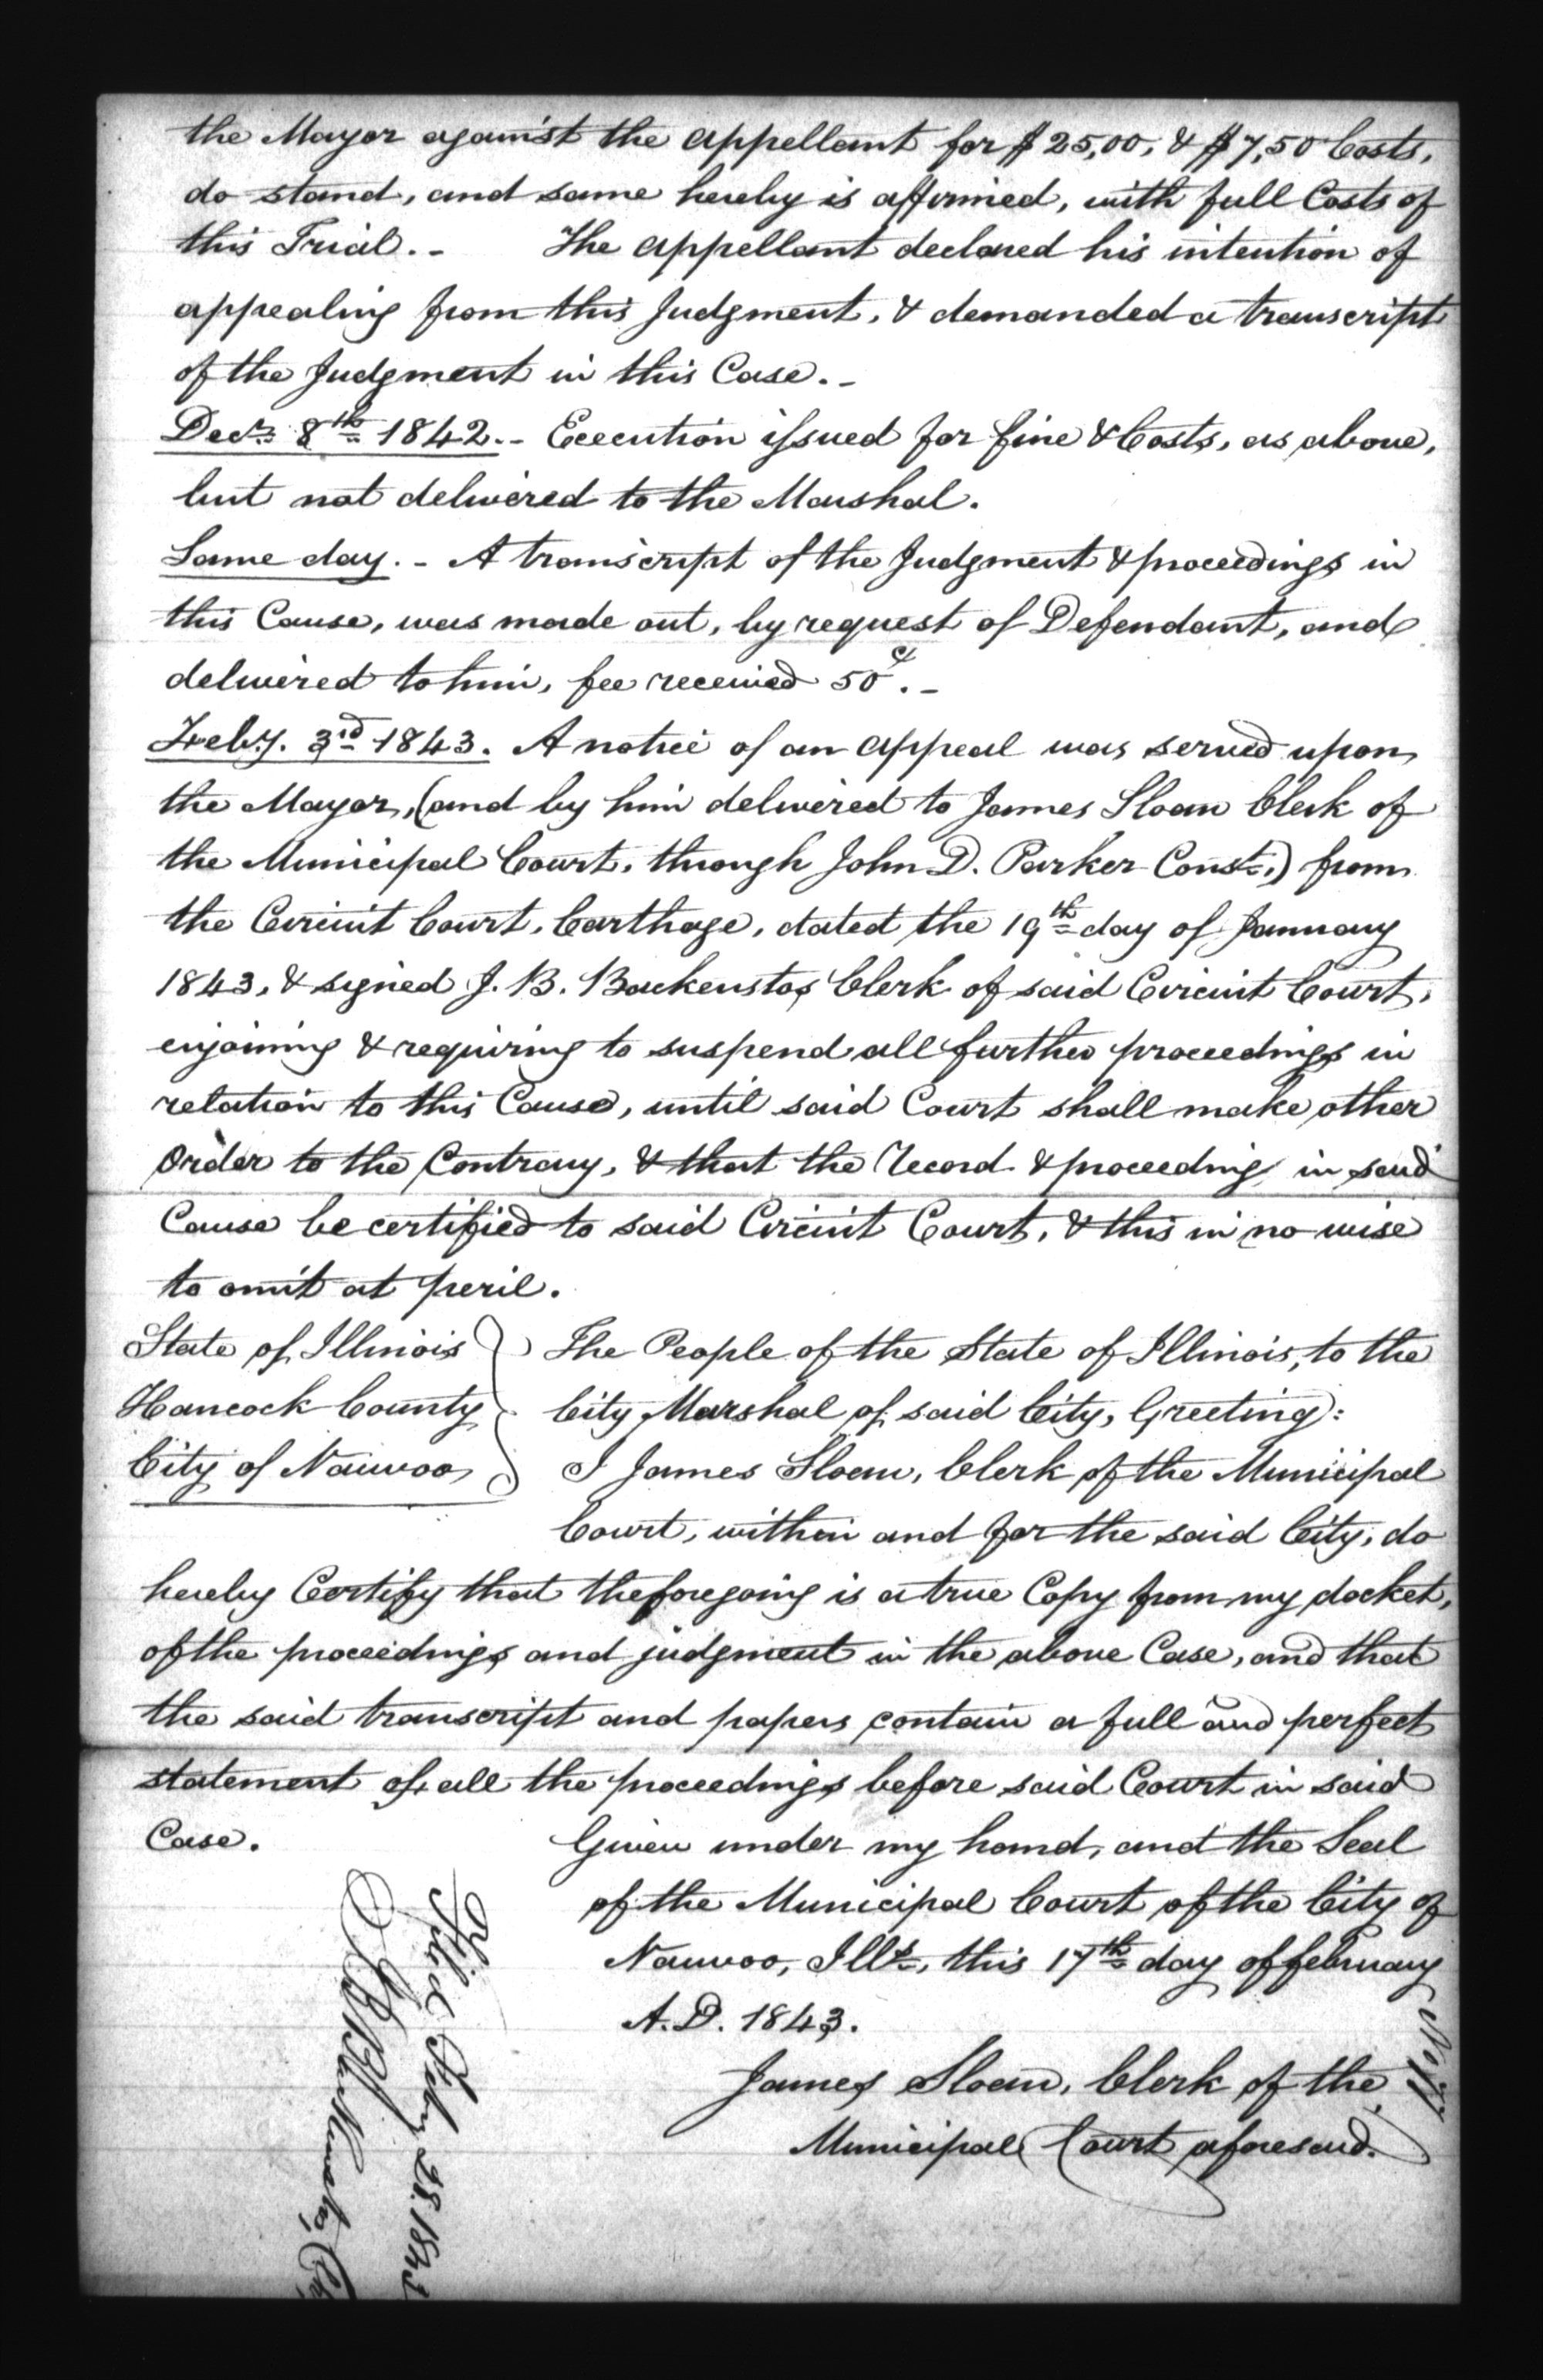 the Mayor against the appellant for $25,00, & $7,50 Costs,
do stand, and same hereby is affirmed, with full Costs of
this Trial. - The appellant declared his intention of
appealing from this Judgment, & demanded a transcript
of the Judgment in this Case. -
Decr. 8th 1842. - Execution issued for fine & Costs, as above,
but not delivered to the Marshal.
Same day. - A transcript of the Judgment & proceedings in
this Cause, was made out, by request of Defendant, and
delivered to him, fee received 50 ct. -
Feby. 3rd 1843. A notice of an appeal was served upon
the Mayor, (and by him delivered to James Sloan Clerk of
the Municipal Court, through John D. Parker Const.,) from
the Circuit Court, Carthage, dated the 19th day of January
1843, & signed J. B. Backenstos Clerk of said Circuit Court,
enjoining & requiring to suspend all further proceedings in
relation to this Cause, until said Court shall make other
order to the Contrary, & that the Record & proceedings in said
Cause be certified to said Circuit Court, & this in no wise
to omit at peril.
State of Illinois } The People of the State of Illinois, to the
Hancock County } City Marshal of said City, Greeting:
City of Nauvoo } I James Sloan, Clerk of the Municipal
Court, within and for the said City, do
hereby Certify that the foregoing is a true Copy from my docket,
of the proceedings and judgment in the above Case, and that
the said transcript and papers contain a full and perfect
statement of all the proceedings before said Court in said
Case. Given under my hand, and the Seal
of the Municipal Court of the City of
Nauvoo, Ills., this 17th day of february
A.D. 1843.
James Sloan, Clerk of the
Municipal Court aforesaid.
Filed Feby 28. 1843
J B Backenstos, Clk